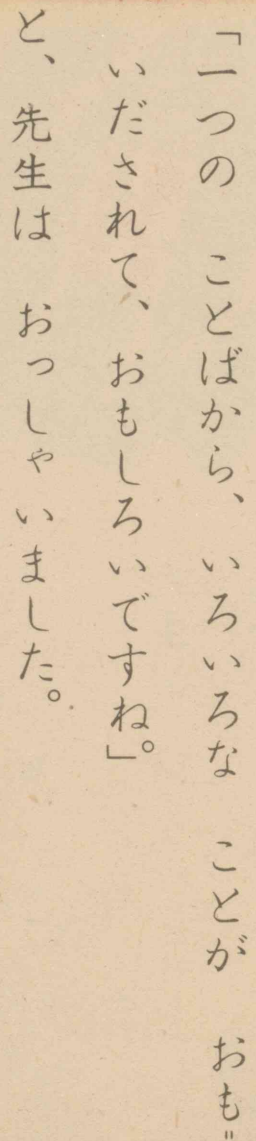 「一つの　ことばから、いろいろな　ことが　おも゠
いだされて、おもしろいですね。」
と、先生は　おっしゃいました。